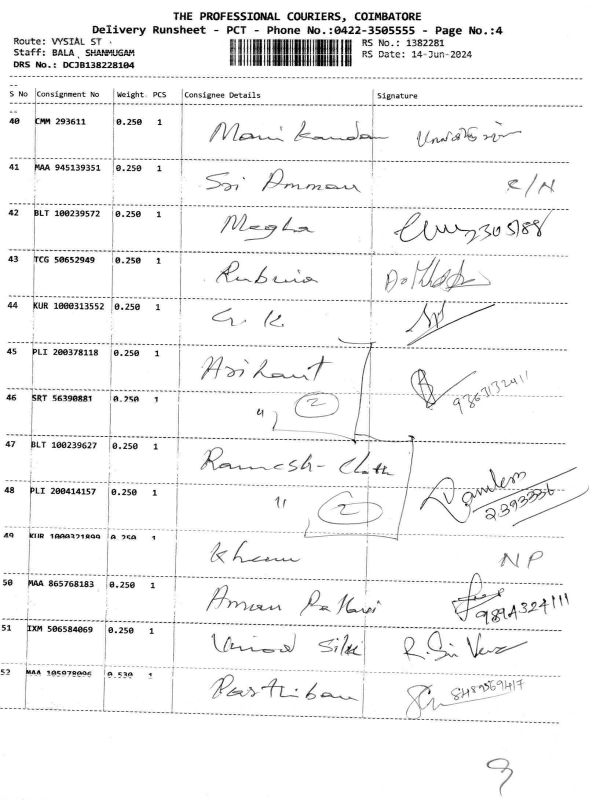 THE PROFESSIONAL COURIERS, COIMBATORE
Delivery Runsheet - PCT - Phone No.:0422-3505555 - Page No.:4
Route: VYSIAL ST . RS No.: 1382281
Staff: BALA , SHANMUGAM RS Date: 14-Jun-2024
DRS No.: DCJB138228104
S No Consignment No Weight. PCS Consignee Details Signature
40 CMM 293611 0.250 1 Mani Kandan
41 MAA 945139351 0.250 1 Sri Amman C/N
42 BLT 100239572 0.250 1 Megha
43 TCG 50652949 0.250 1 Rubuia
44 KUR 1000313552 0.250 1 G. K
45 PLI 200378118 0.250 1 Arihant
46 SRT 56390881 0.250 1 " 2
47 BLT 100239627 0.250 1 Ramesh - Cloth
48 PLI 200414157 0.250 1 " 2 2393336
49 KUR 1000321899 0.250 1 Khem NP
50 MAA 865768183 0.250 1 Aman 9894324111
51 IXM 506584069 0.250 1 Vinod Silk
52 MAA 105978096 0.530 1 Parthiban